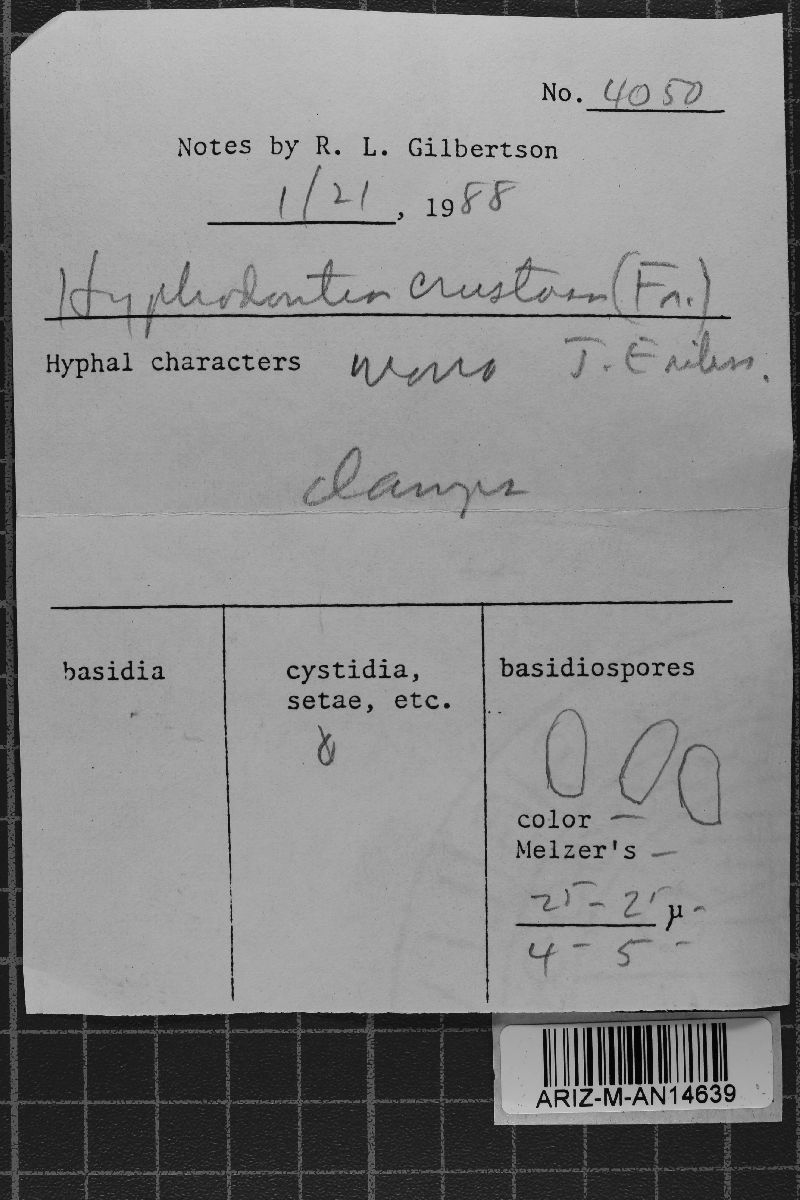 No. 4050
Notes by R. L. Gilbertson
1/21, 1988
Hyphodontia crustosa (Fr.)
Hyphal characters mono J. Erikss.
clamps
basidia
cystidia,
setae, etc.
basidiospores
color —
Melzer's —
μ
4 - 5
ARIZ-M-AN14639